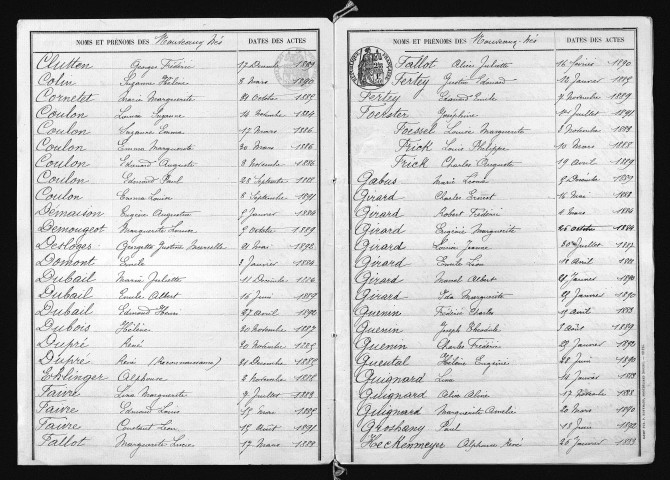 NOMS ET PRÉNOMS DES Nouveaux Nés DATES DES ACTES
Clutton Georges Frédéric 17 Décembre 1889
Colin Suzanne Hélène 8 Mars 1890
Cornetet Maria Marguerite 21 Octobre 1885
Coulon Louise Suzanne 14 Novembre 1884
Coulon Suzanne Emma 17 Mars 1886
Coulon Emma Marguerite 20 Mars 1886
Coulon Edouard Auguste 8 Novembre 1886
Coulon Edmond Paul 25 Septembre 1888
Coulon Emma Louise 8 Septembre 1891
Démaison Eugène Augustin Janvier 1884
Demougeot Marguerite Louise 9 Octobre 1889
Desloges Georgette Justine Marcelle 21 Mai 1892
Domont Emile 3 Janvier 1884
Dubail Maria Juliette 11 Décembre 1886
Dubail Emile Albert 16 Juin 1889
Dubail Edmond Henri 27 Avril 1890
Dubois Hélène 20 Novembre 1887
Dupré René 20 Novembre 1885
Dupré René (Reconnaissance) 24 Décembre 1885
Ehlinger Alphonse 2 Novembre 1888
Faivre Lina Marguerite 9 Juillet 1883
Faivre Edmond Louis 15 Mars 1885
Faivre Constant Léon 15 Août 1891
Fallot Marguerite Lucie 17 Mars 1883
NOMS ET PRÉNOMS DES Nouveaux-Nés DATES DES ACTES
Fallot Alice Juliette 16 Février 1890
Fertey Gustave Edouard 12 Janvier 1885
Fertey Edouard Emile 7 Novembre 1889
Foerster Joséphine Juillet 1891
Foessel Louise Marguerite 8 Novembre 1888
Frick Louis Philippe 10 Mars 1888
Frick Charles Auguste 19 Avril 1889
Gabus Marie Léonie Décembre 1889
Girard Charles Ernest 16 Mai 1883
Girard Robert Frédéric 2 Mars 1884
Girard Eugénie Marguerite 26 Octobre 1884
Girard Louise Jeanne 30 Juillet 1887
Girard Emile Léon 18 Août 1888
Girard Marcel Albert 21 Janvier 1890
Girard Ida Marguerite 29 Janvier 1890
Guenin Frédéric Charles 15 Avril 1883
Guenin Joseph Théodule 3 Août 1889
Guenin Charles Frédéric 29 Janvier 1892
Gueutal Hélène Eugénie 28 Juin 1890
Guignard Lina 14 Janvier 1883
Guignard Alice Aline 17 Novembre 1888
Guignard Marguerite Amélie 20 Mars 1890
Groshany Paul 13 Juin 1892
Heckenmeyer Alphonse René 26 Janvier 1883